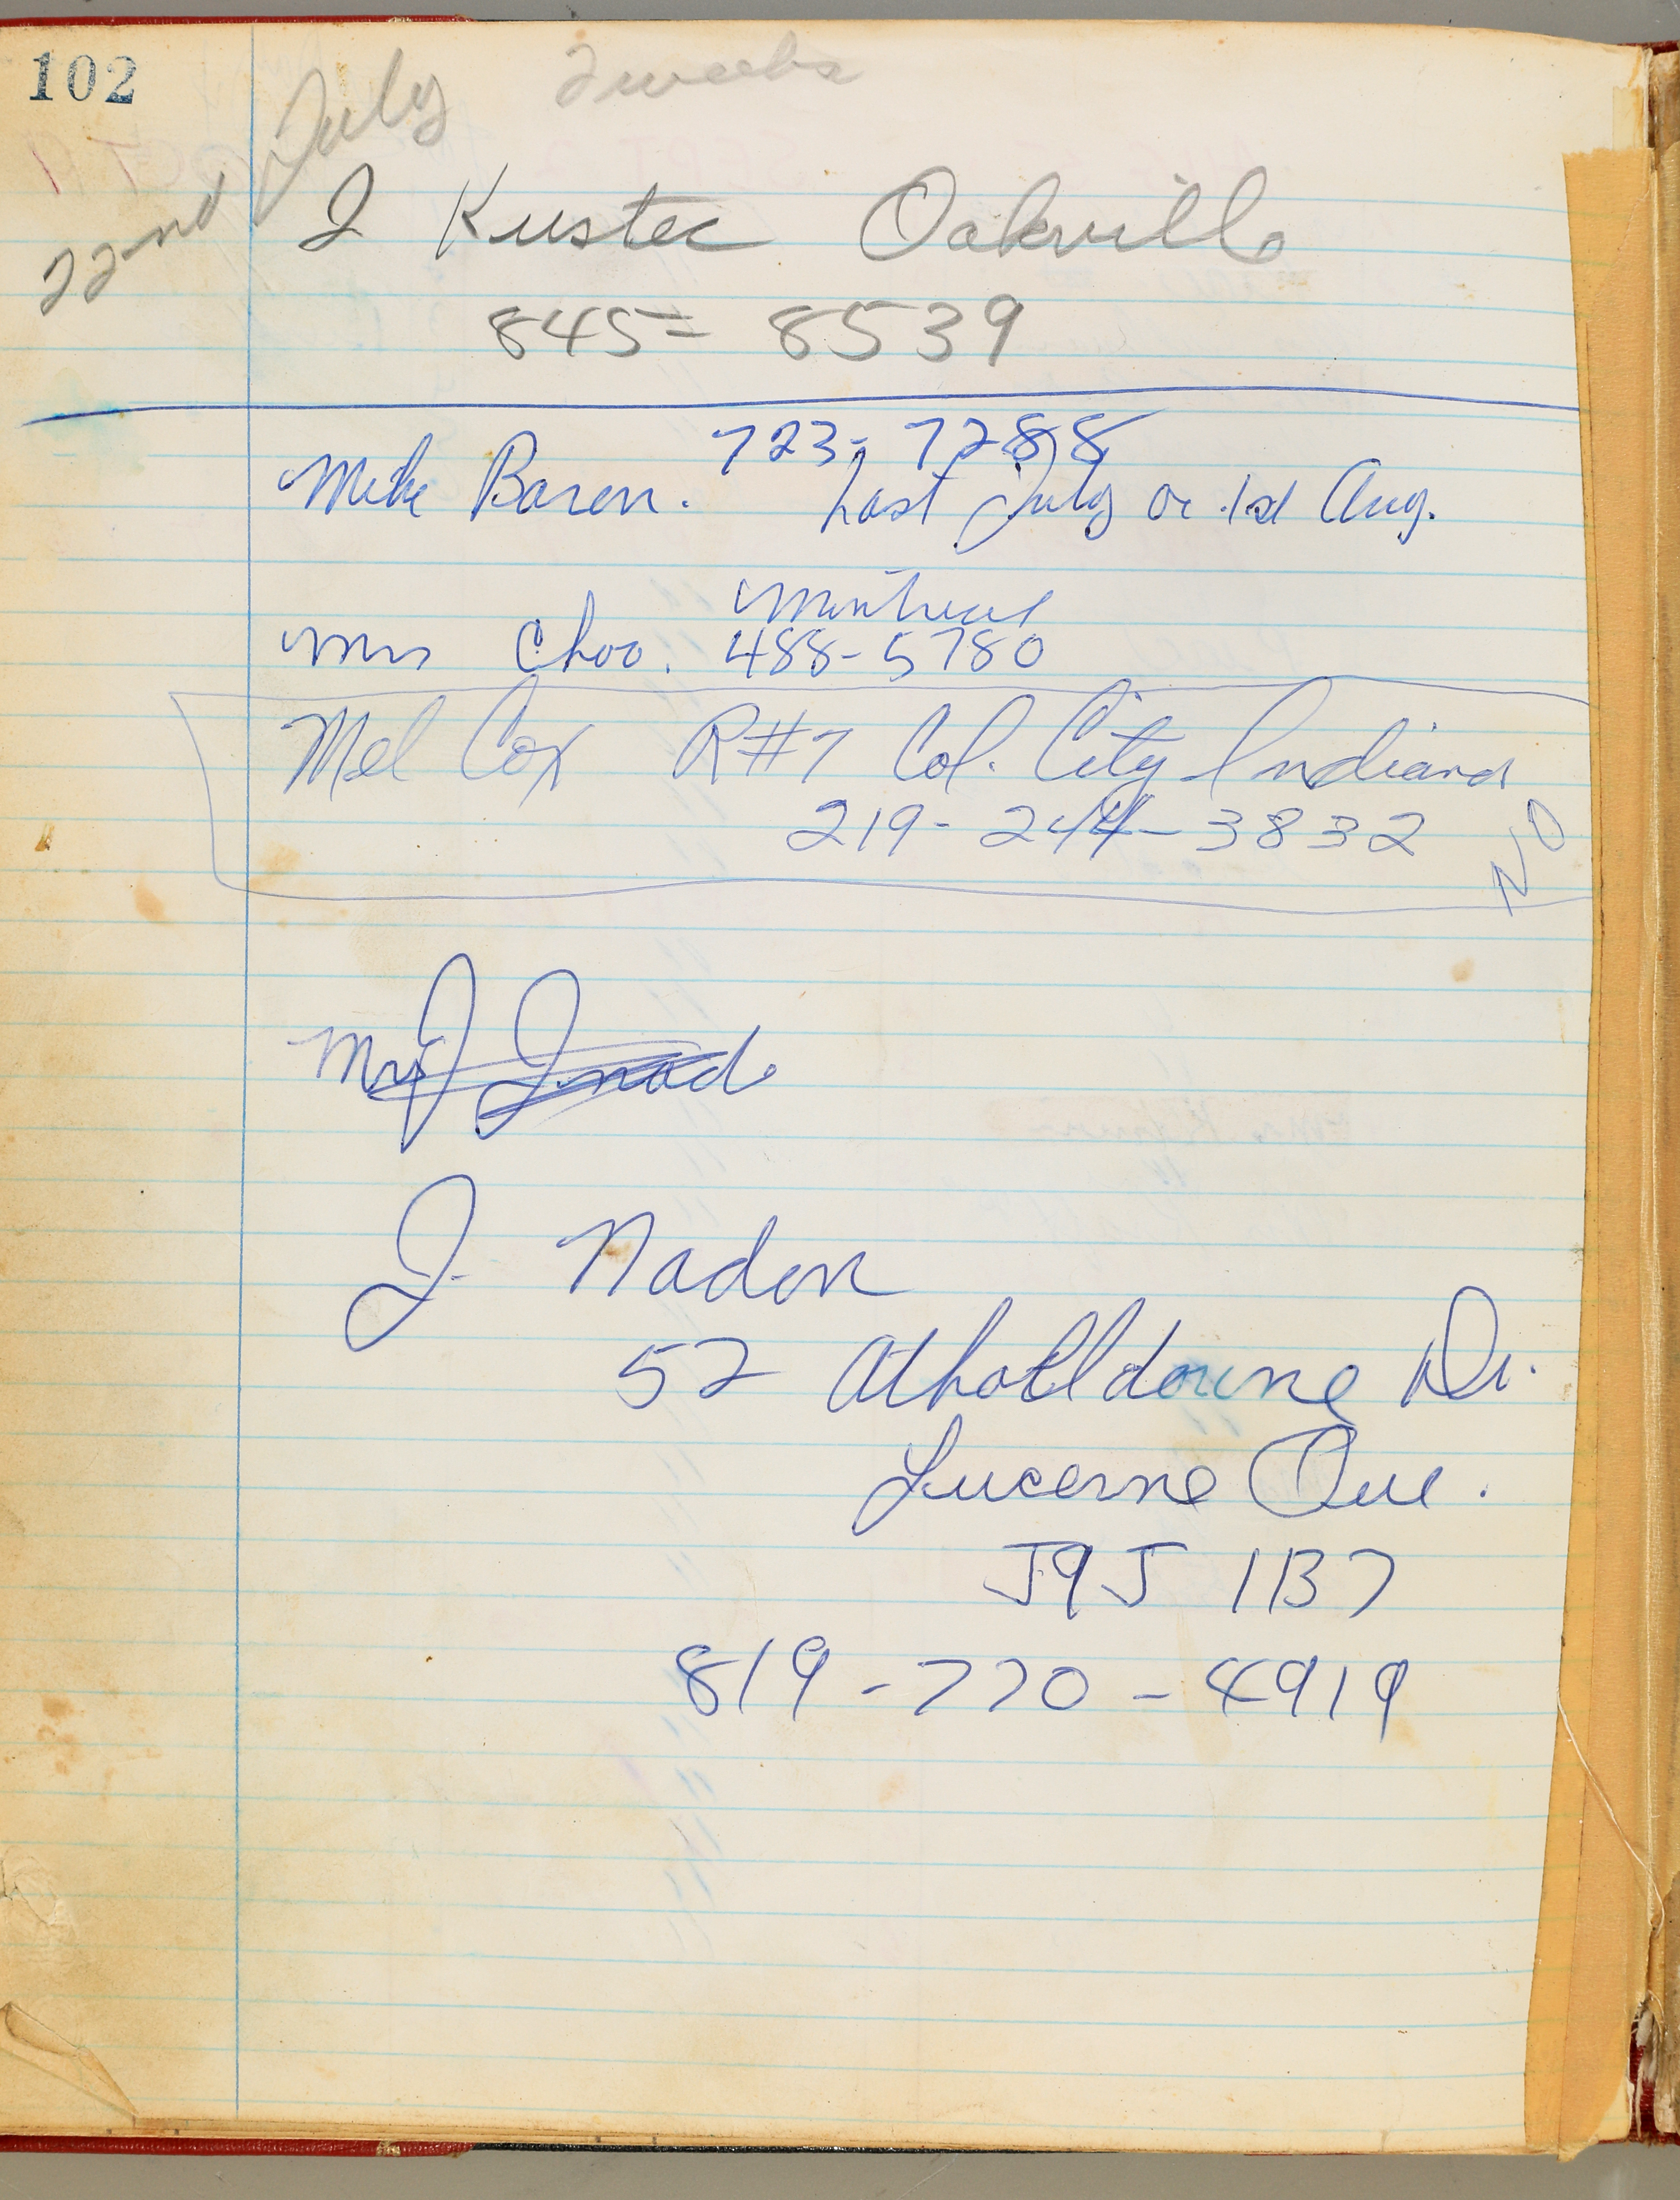 102
22nd July 2 weeks
J Kustec Oakville
845-8539
723-7288
Mike Baron. Last July or 1st Aug.
Montreal
Mrs Choo. 488-5780
Mel Cox R#7 Col. City Indiana
219-244-3832 NO
Mr J
J. Nadon
52 Atholldoune Dr.
Lucerne Que.
J9J 1B7
819-770-4919